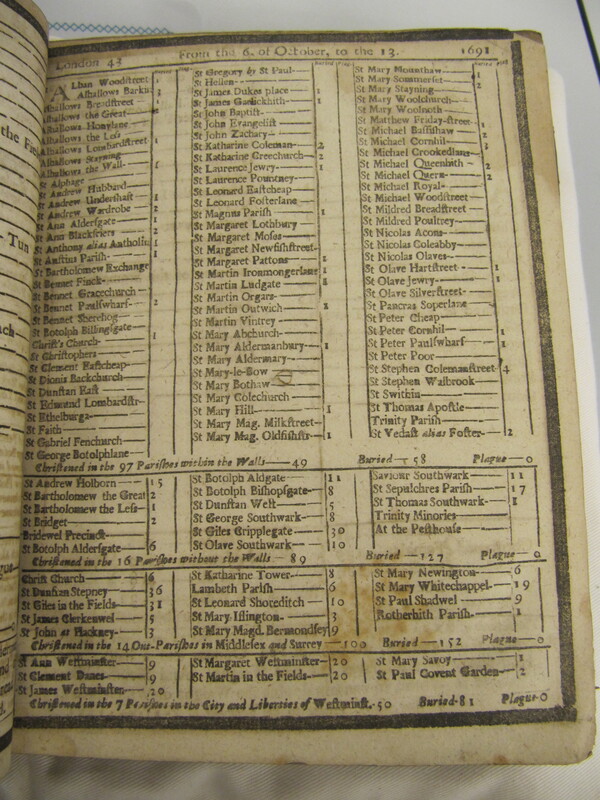 London 43 From the 6. of October, to the 13. 1691
Alban Woodstreet
Alhallows Barkin 1
Alhallows Breadstreet 1
Alhallows the Great 2
Alhallows Honylane
Alhallows the Less
Alhallows Lombardstreet 1
Alhallows Stayning
Alhallows the Wall 1
St Alphage
St Andrew Hubbard
St Andrew Undershaft 1
St Andrew Wardrobe 2
St Ann Aldersgate 1
St Ann Blackfriers 2
St Anthony alias Antholin 1
St Austins Parish 1
St Bartholomew Exchange
St Bennet Finck
St Bennet Gracechurch
St Bennet Paulswharf 2
St Bennet Sherehog
St Botolph Billingsgate 1
Christ's Church
St Christophers
St Clement Eastcheap
St Dionis Backchurch
St Dunstan East
St Edmund Lombardstr.
St Ethelburga
St Faith
St Gabriel Fenchurch
St George Botolphlane
St Gregory by St Paul
St Hellen
St James Dukes place 1
St James Garlickhith 1
St John Baptist
St John Evangelist
St John Zachary
St Katharine Coleman 2
St Katharine Creechurch 2
St Laurence Jewry 1
St Laurence Pountney
St Leonard Eastcheap
St Leonard Fosterlane
St Magnus Parish 1
St Margaret Lothbury
St Margaret Moses
St Margaret Newfishstreet
St Margaret Pattons 1
St Martin Ironmongerlane 1
St Martin Ludgate 8
St Martin Orgars
St Martin Outwich 1
St Martin Vintrey
St Mary Abchurch
St Mary Aldermanbury 1
St Mary Aldermary
St Mary-le-Bow
St Mary Bothaw
St Mary Colechurch
St Mary Hill 1
St Mary Mag. Milkstreet
St Mary Mag. Oldfishstr 1
St Mary Mounthaw 1
St Mary Sommerset 2
St Mary Stayning
St Mary Woolchurch
St Mary Woolnoth
St Matthew Friday-street 1
St Michael Bassishaw 2
St Michael Cornhil 3
St Michael Crookedlane
St Michael Queenhith 2
St Michael Quern 2
St Michael Royal
St Michael Woodstreet
St Mildred Breadstreet
St Mildred Poultrey
St Nicolas Acons
St Nicolas Coleabby
St Nicolas Olaves
St Olave Hartstreet 1
St Olave Jewry 1
St Olave Silverstreet
St Pancras Soperlane
St Peter Cheap
St Peter Cornhil 1
St Peter Paulswharf 1
St Peter Poor
St Stephen Colemanstreet 4
St Stephen Walbrook
St Swithin
St Thomas Apostle
Trinity Parish
St Vedast alias Foster 2
Christened in the 97 Parishes within the Walls 49 Buried 58 Plague 0
St Andrew Holborn 15
St Bartholomew the Great 2
St Bartholomew the Less 1
St Bridget 2
Bridewel Precinct
St Botolph Aldersgate 6
St Botolph Aldgate 11
St Botolph Bishopsgate 8
St Dunstan West 5
St George Southwark 8
St Giles Cripplegate 30
St Olave Southwark 10
Saviour Southwark 11
St Sepulchres Parish 17
St Thomas Southwark 1
Trinity Minories
At the Pesthouse
Christened in the 16 Parishes without the Walls 89 Buried 127 Plague 0
Christ Church 6
St Dunstan Stepney 36
St Giles in the Fields 31
St James Clerkenwel 5
St John at Hackney 3
St Katharine Tower 8
Lambeth Parish 6
St Leonard Shoreditch 10
St Mary Islington 3
St Mary Magd. Bermondsey 9
St Mary Newington 6
St Mary Whitechappel 19
St Paul Shadwel 9
Rotherhith Parish 1
Christened in the 14 Out-Parishes in Middlesex and Surrey 100 Buried 152 Plague 0
St Ann Westminster 9
St Clement Danes 9
St James Westminster 20
St Margaret Westminster 20
St Martin in the Fields 20
St Mary Savoy 1
St Paul Covent Garden 2
Christened in the 7 Parishes in the City and Liberties of Westminst. 50 Buried 81 Plague 0